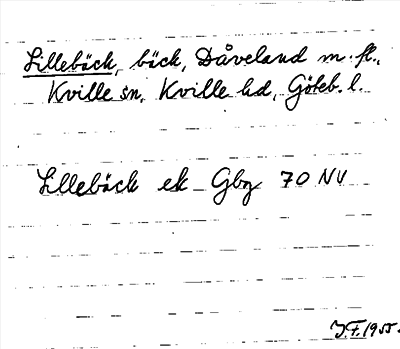 Lillebäck, bäck, Dåveland m. fl.,
Kville sn, Kville hd, Göteb. l.
Lillebäck ek Gbg 70 NV
J.F. 1955.